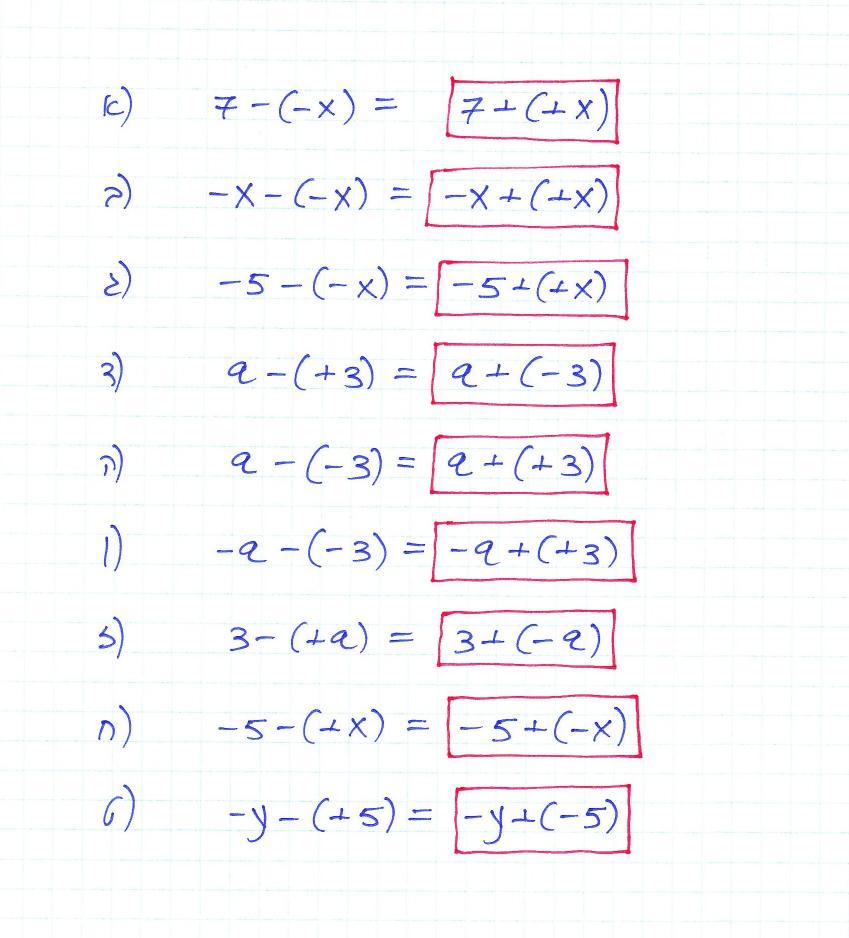 א) 7-(-x) = 7+(+x)
ב) -x-(-x) = -x+(+x)
ג) -5-(-x) = -5+(+x)
ד) a-(+3) = a+(-3)
ה) a-(-3) = a+(+3)
ו) -a-(-3) = -a+(+3)
ז) 3-(+a) = 3+(-a)
ח) -5-(+x) = -5+(-x)
ט) -y-(+5) = -y+(-5)